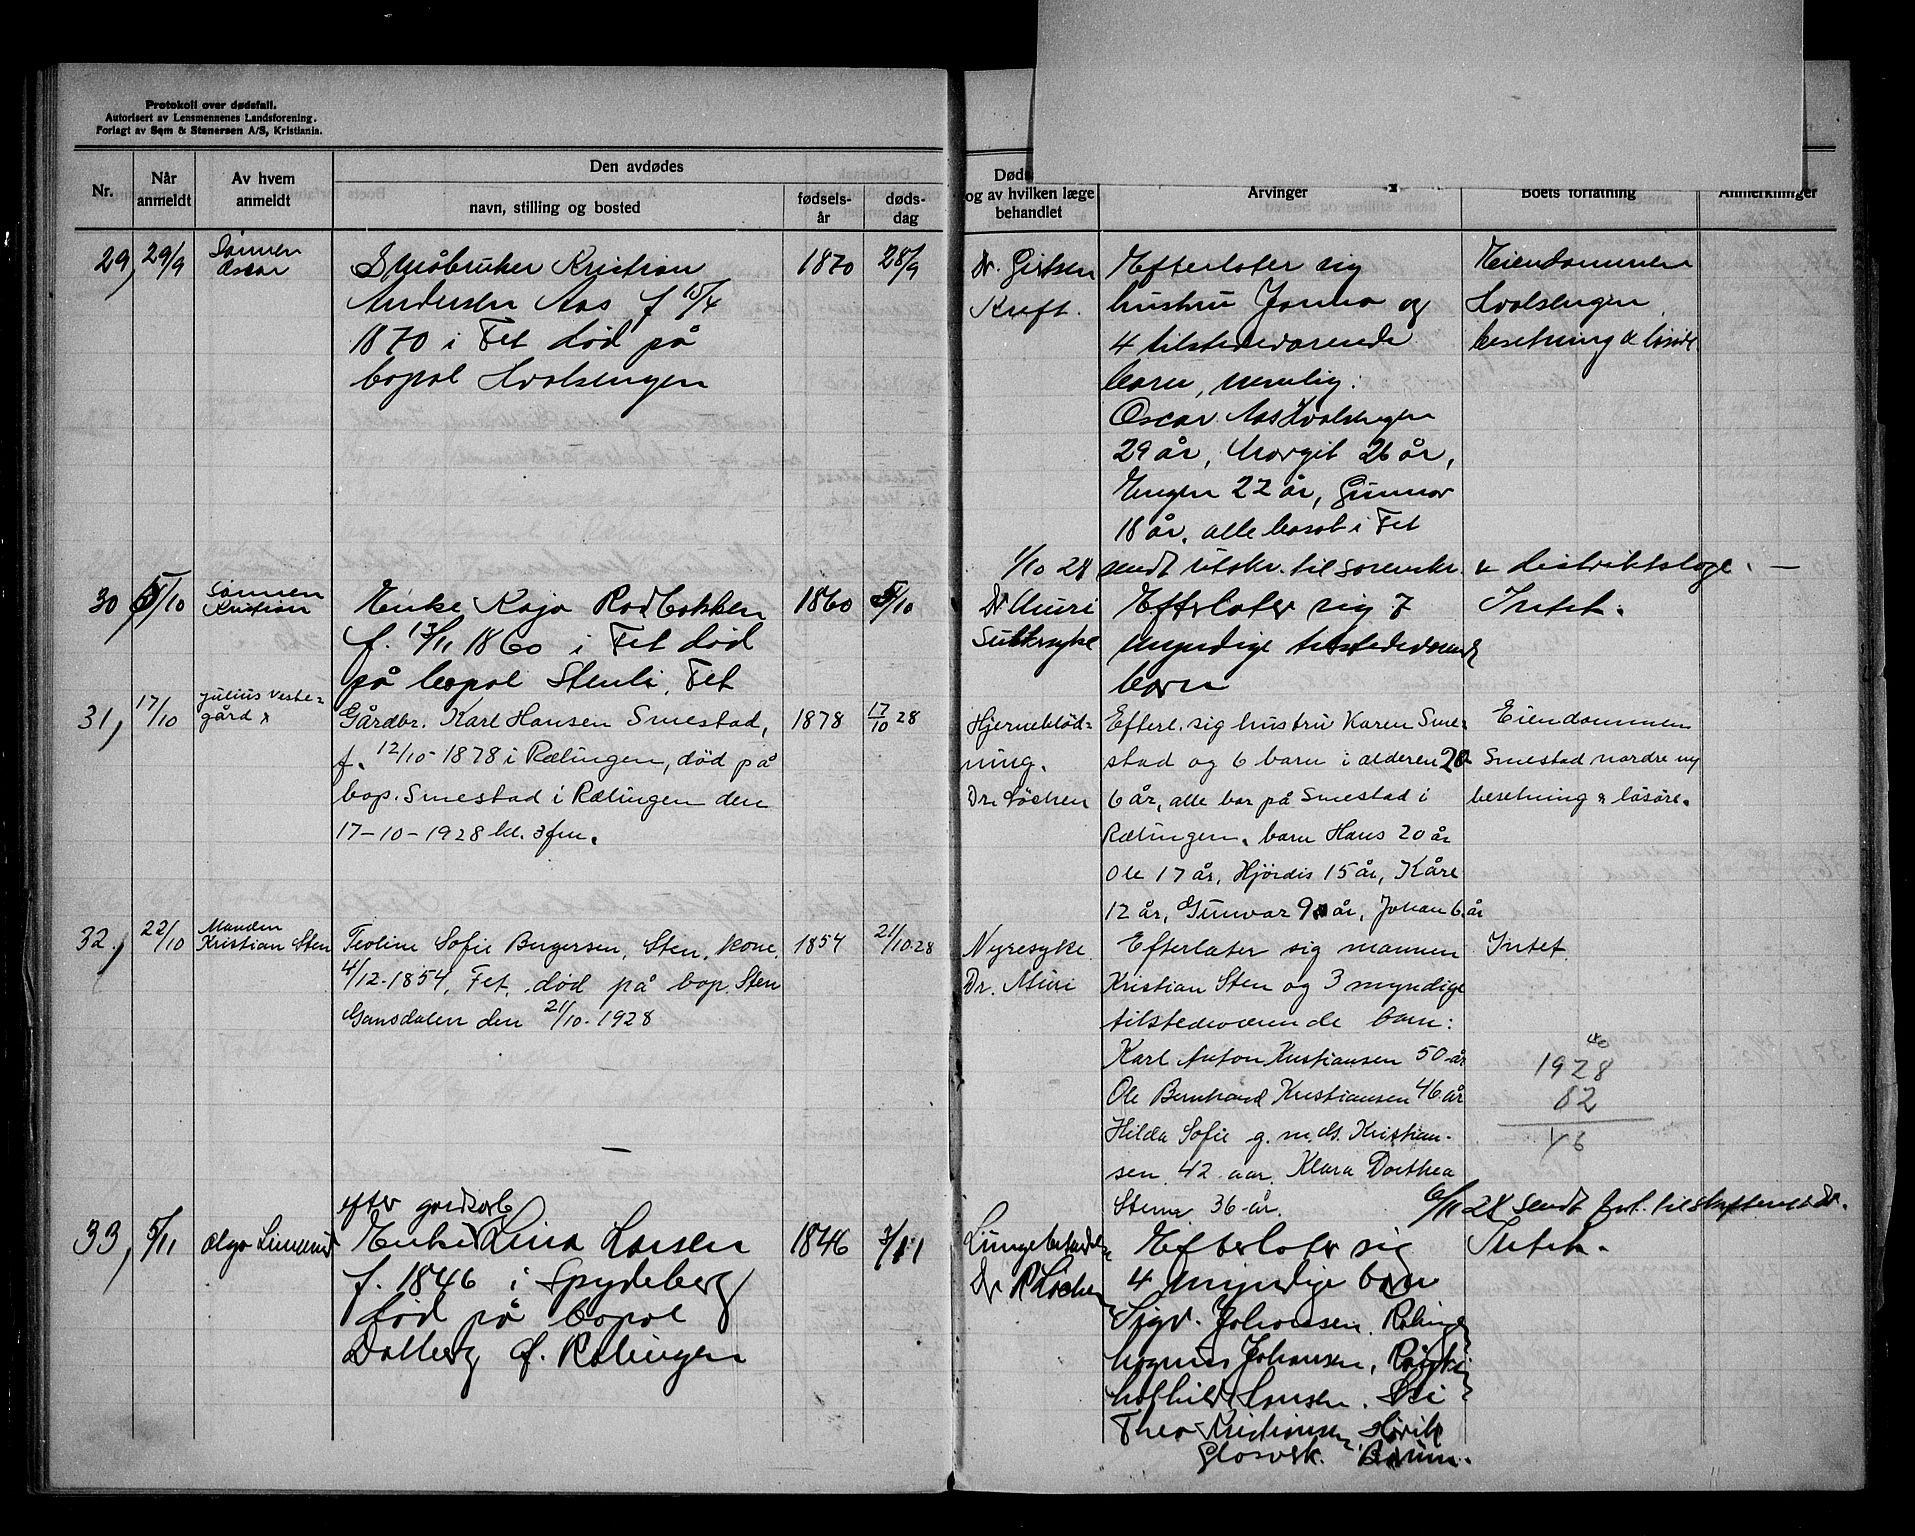 Protokoll over dødsfall.
Autorisert av Lensmennenes Landsforening.
Forlagt av Sem & Stenersen A/S, Kristiania.
Nr.
Når anmeldt
Av hvem anmeldt
Den avdødes
navn, stilling og bosted
fødsels-år
døds-dag
Døds
og av hvilken læge
behandlet
Arvinger
Boets forfatning
Anmerkninger
29, 29/9 Sønnen Oscar
Småbruker Kristian
Andersen Aas f 15/4
1870 i Fet død på
bopæl Hvalsengen
1870 28/9
Dr. Girtsen
Kreft.
Efterlater sig
hustru Janna og
4 tilstedeværende
barn, nemlig:
Oscar Aas Hvalsengen
29 år, Margit 26 år,
Engen 22 år, Gunnar
18 år, alle bosat i Fet
Eiendommen
Hvalsengen
besetning & løsøre
1/10 28 sendt utskr. til sorenskr. & distriktslæge. —
30 5/10 Sønnen Kristian
Enke Kaja Rodbakken
f. 13/11 1860 i Fet død
på bopæl Stenli, Fet
1860 5/10
Dr Muri
Sukkersyke
Efterlater sig 7
myndige tilstedeværende
barn
Intet.
31, 17/10 Julius Vestegård
Gårdbr. Karl Hansen Smestad,
f. 12/10-1878 i Rælingen, død på
bop. Smestad i Rælingen den
17-10-1928 kl. 3 fm.
1878 17/10 28
Hjerneblød-
ning.
Dr. Løchen
Efterl. sig hustru Karen Sme-
stad og 6 barn i alderen 20-
6 år, alle bor på Smestad i
Rælingen. barn Hans 20 år
Ole 17 år, Hjørdis 15 år, Kåre
12 år, Gunvar 9 år, Johan 6 år
Eiendommen
Smestad nordre m/
besetning & løsøre.
32, 22/10 Manden
Kristian Sten
Teoline Sofie Birgersen, Sten, kone,
4/12-1854, Fet, død på bop. Sten
Gansdalen den 21/10-1928
1854 21/10-28
Nyresyke.
Dr. Muri
Efterlater sig mannen
Kristian Sten og 3 myndige
tilstedeværende barn:
Karl Anton Kristiansen 50 år
Ole Bernhard Kristiansen 46 år
Hilda Sofie g. m. M. Kristian-
sen 42 aar. Klara Dorthea
Stenn 36 år.
Intet.
1928
82
46
6/11 28 sendt
—
33, 5/11 Olga
efter
Enke Lina Larsen
f. 1846 i Spydeberg
død på bopæl
Dalberg i Rælingen
1846 3/11
Lungebetændelse
Dr. P Løchen
Efterlater sig
4 myndige barn
Sigv. Johansen, Rælingen
Magnus Johansen,
Mathilde Hansen,
Thea Kristiansen, Høvik
Glasverk. Bærum.
Intet.